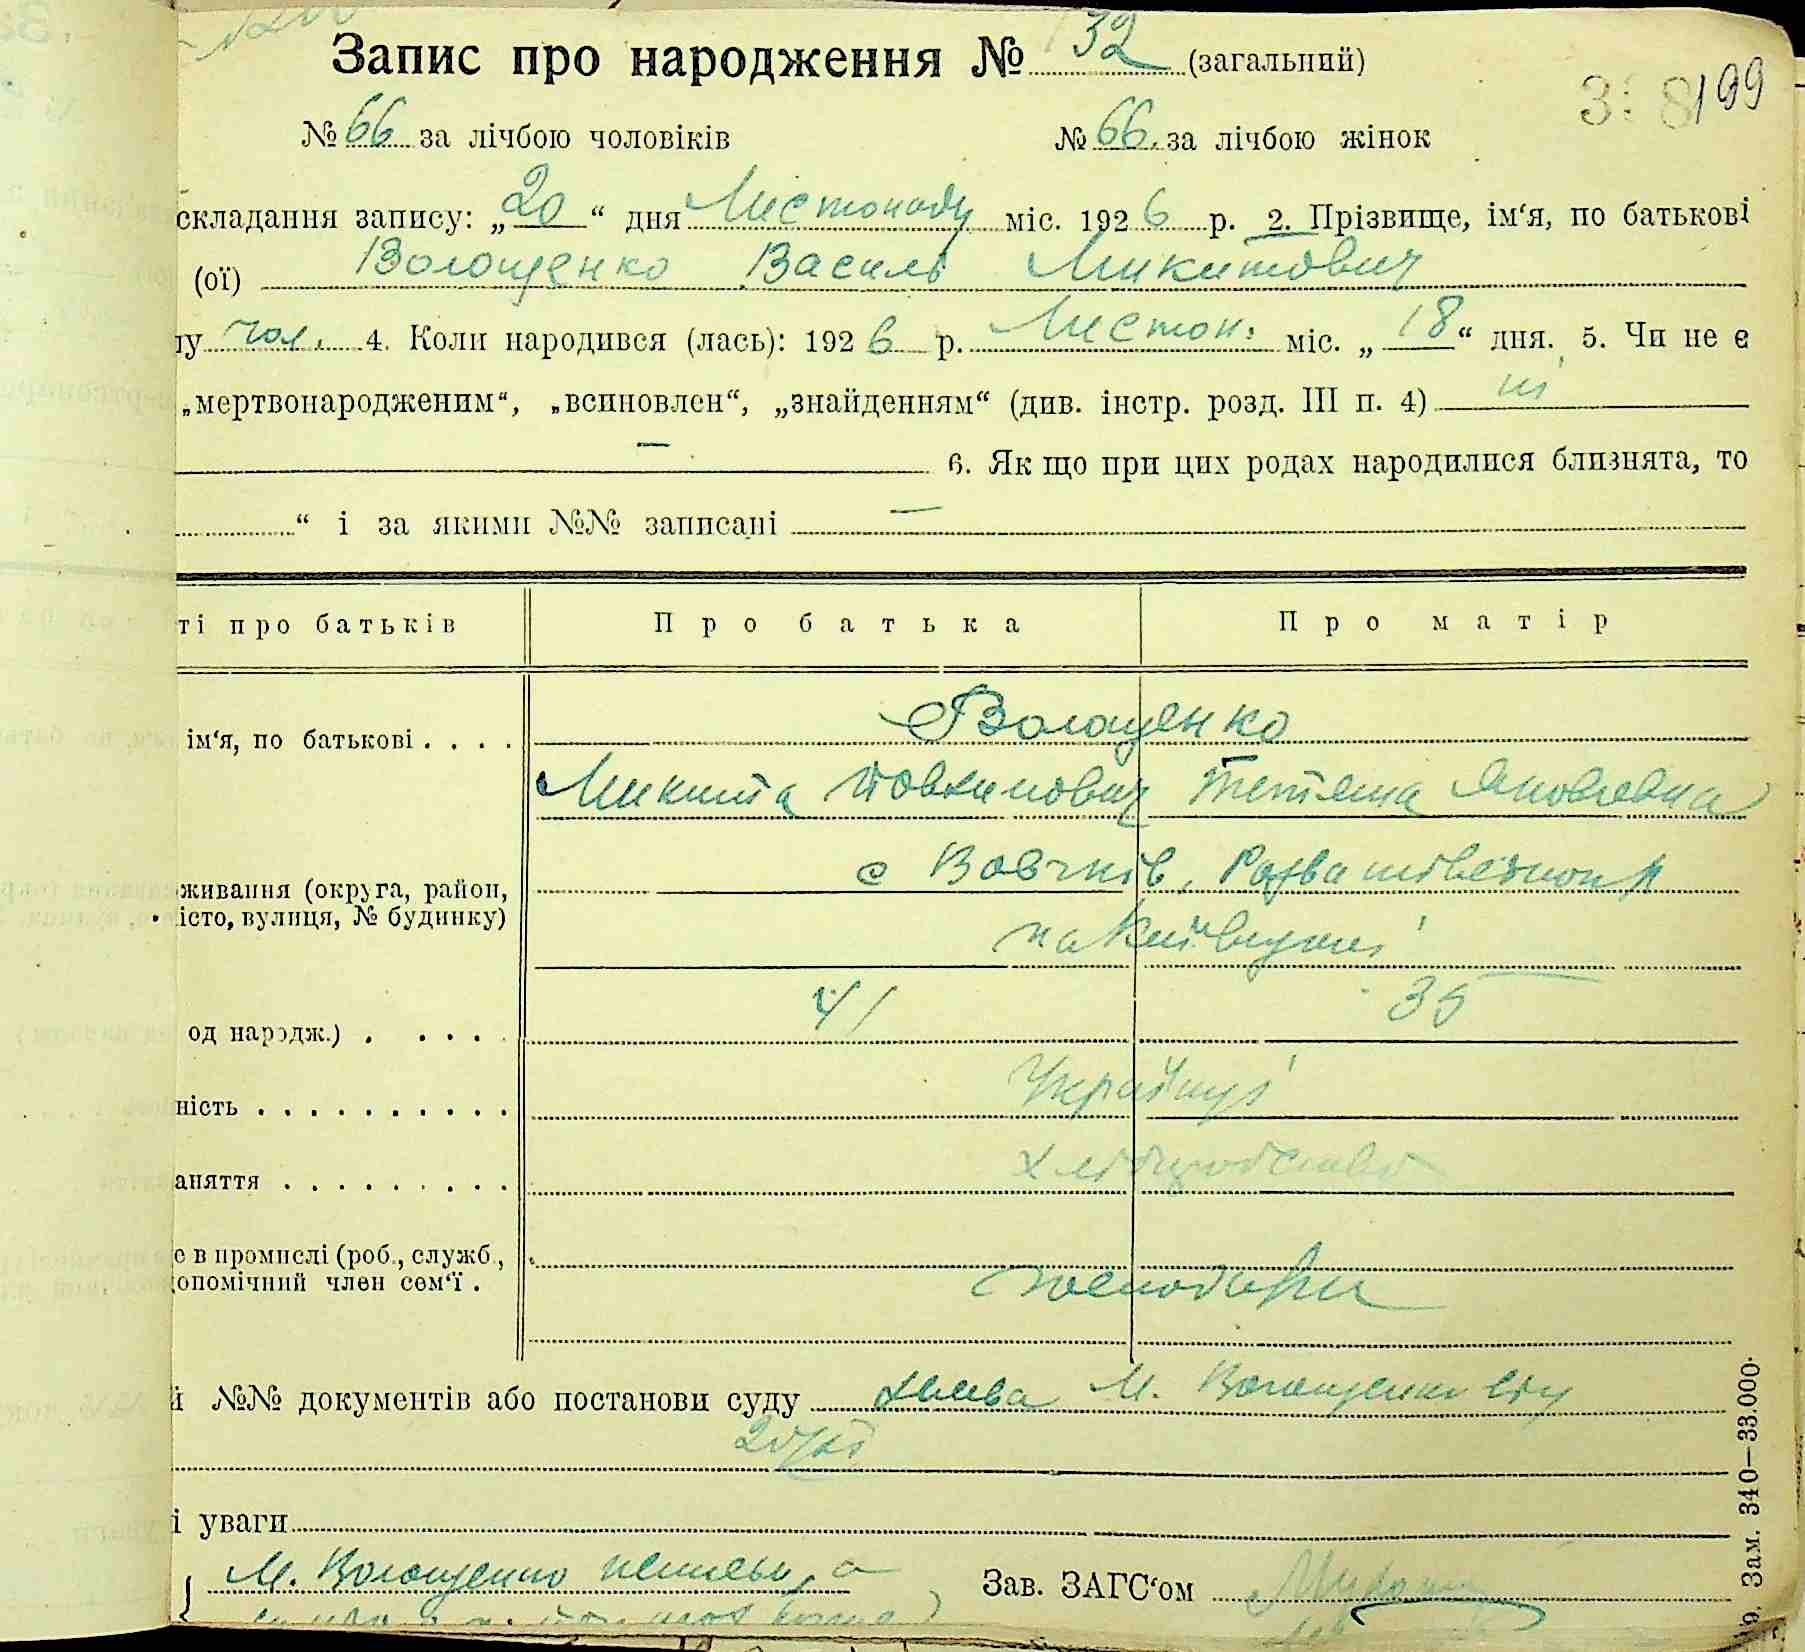 Запис про народження № 132 (загальний)
199
№ 66 за лічбою чоловіків № 66. за лічбою жінок
складання запису: „20“ дня Листопаду міс. 1926 р. 2. Прізвище, ім‘я, по батькові
(ої) Волощенко Василь Микитович
чол. 4. Коли народився (лась): 1926 р. Листоп. міс. „18“ дня. 5. Чи не є
„мертвонародженим“, „всиновлен“, „знайденням“ (див. інстр. розд. III п. 4) ні
— 6. Як що при цих родах народилися близнята, то
“ і за якими №№ записані —
ті про батьків Про батька Про матір
ім‘я, по батькові . . . . Волощенко
Микита Тетяна Яковлевна
живання (округа, район, с Вовчків,
істо, вулиця, № будинку)
на Київщині
од народж.) . . . . . 41 35
ність . . . . . . . . . . Українці
аняття . . . . . . . . . хліборобство
е в промислі (роб., служб.,
опомічний член сем‘ї . господари
№№ документів або постанови суду заява М. Волощенко від
20/XI
і уваги
М. Волощенко
Зав. ЗАГС‘ом
Зам. 340—33.000.